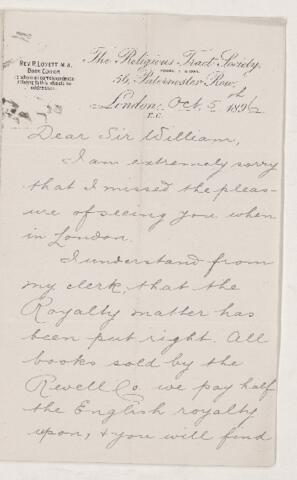 REV. R. LOVETT M.A.
BOOK EDITOR
to whom all correspondence
relating to this should be
addressed
The Religious Tract Society,
56, Paternoster Row,
London, Oct. 5th 189
E.C.
Dear Sir William,
I am extremely sorry
that I missed the pleas-
ure of seeing you when
in London.
I understand from
my clerk, that the
Royalty matter has
been put right. All
books sold by the
Revell Co. we pay half
the English royalty
upon, & you will find